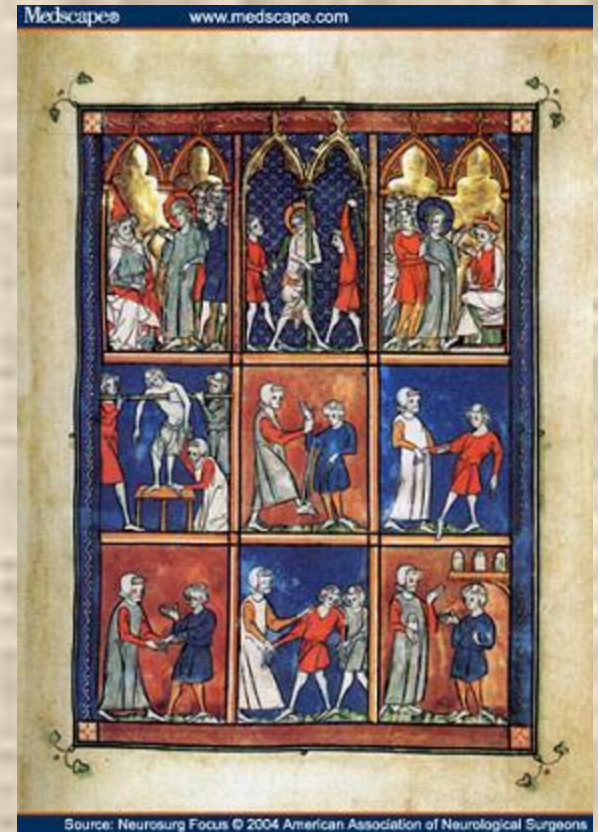 Medscape® www.medscape.com
Source: Neurosurg Focus © 2004 American Association of Neurological Surgeons